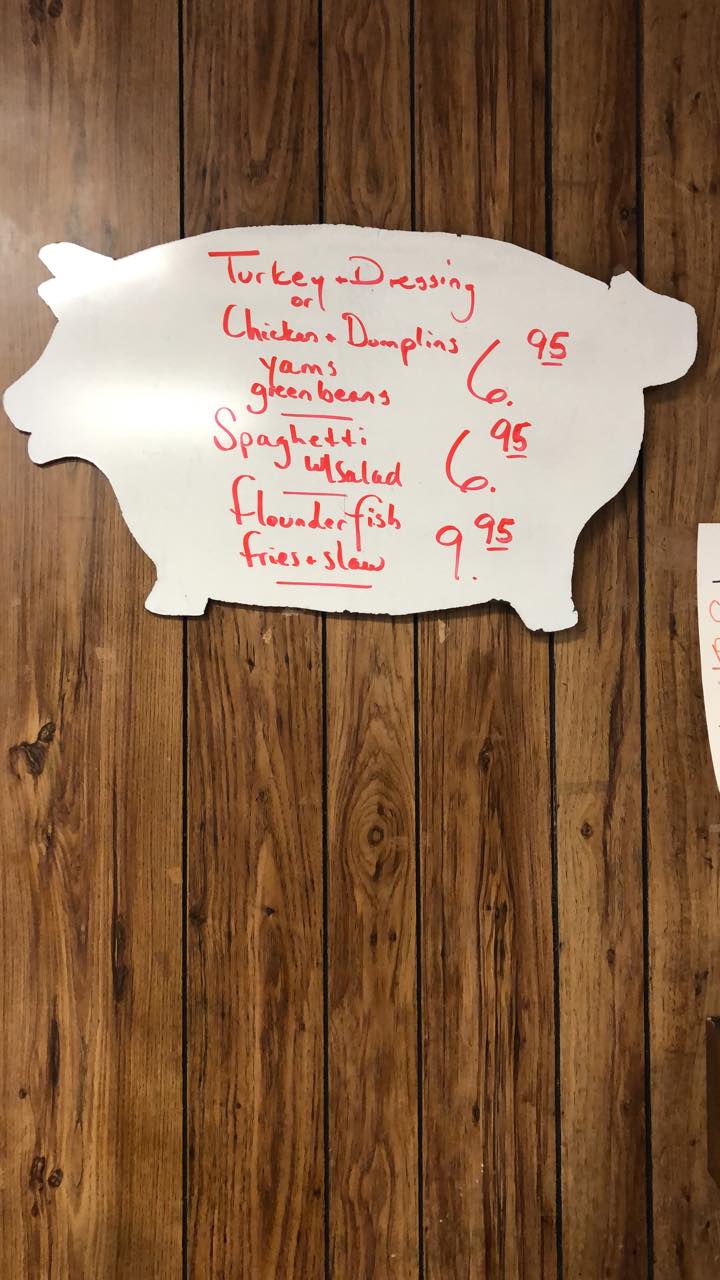 Turkey + Dressing
or
Chicken + Dumplins
yams
greenbeans
6.95
Spaghetti
w/Salad
6.95
flounder fish
fries + slaw
9.95